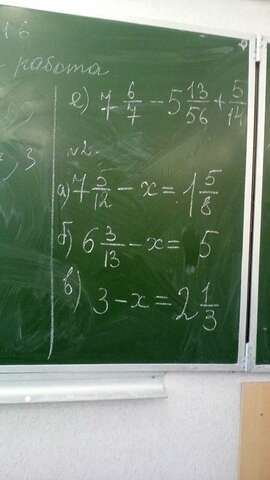 16
работа
е) 7 6/7 - 5 13/56 + 5/14
) 3
№2.
а) 7 5/12 - x = 1 5/8
б) 6 3/13 - x = 5
в) 3 - x = 2 1/3